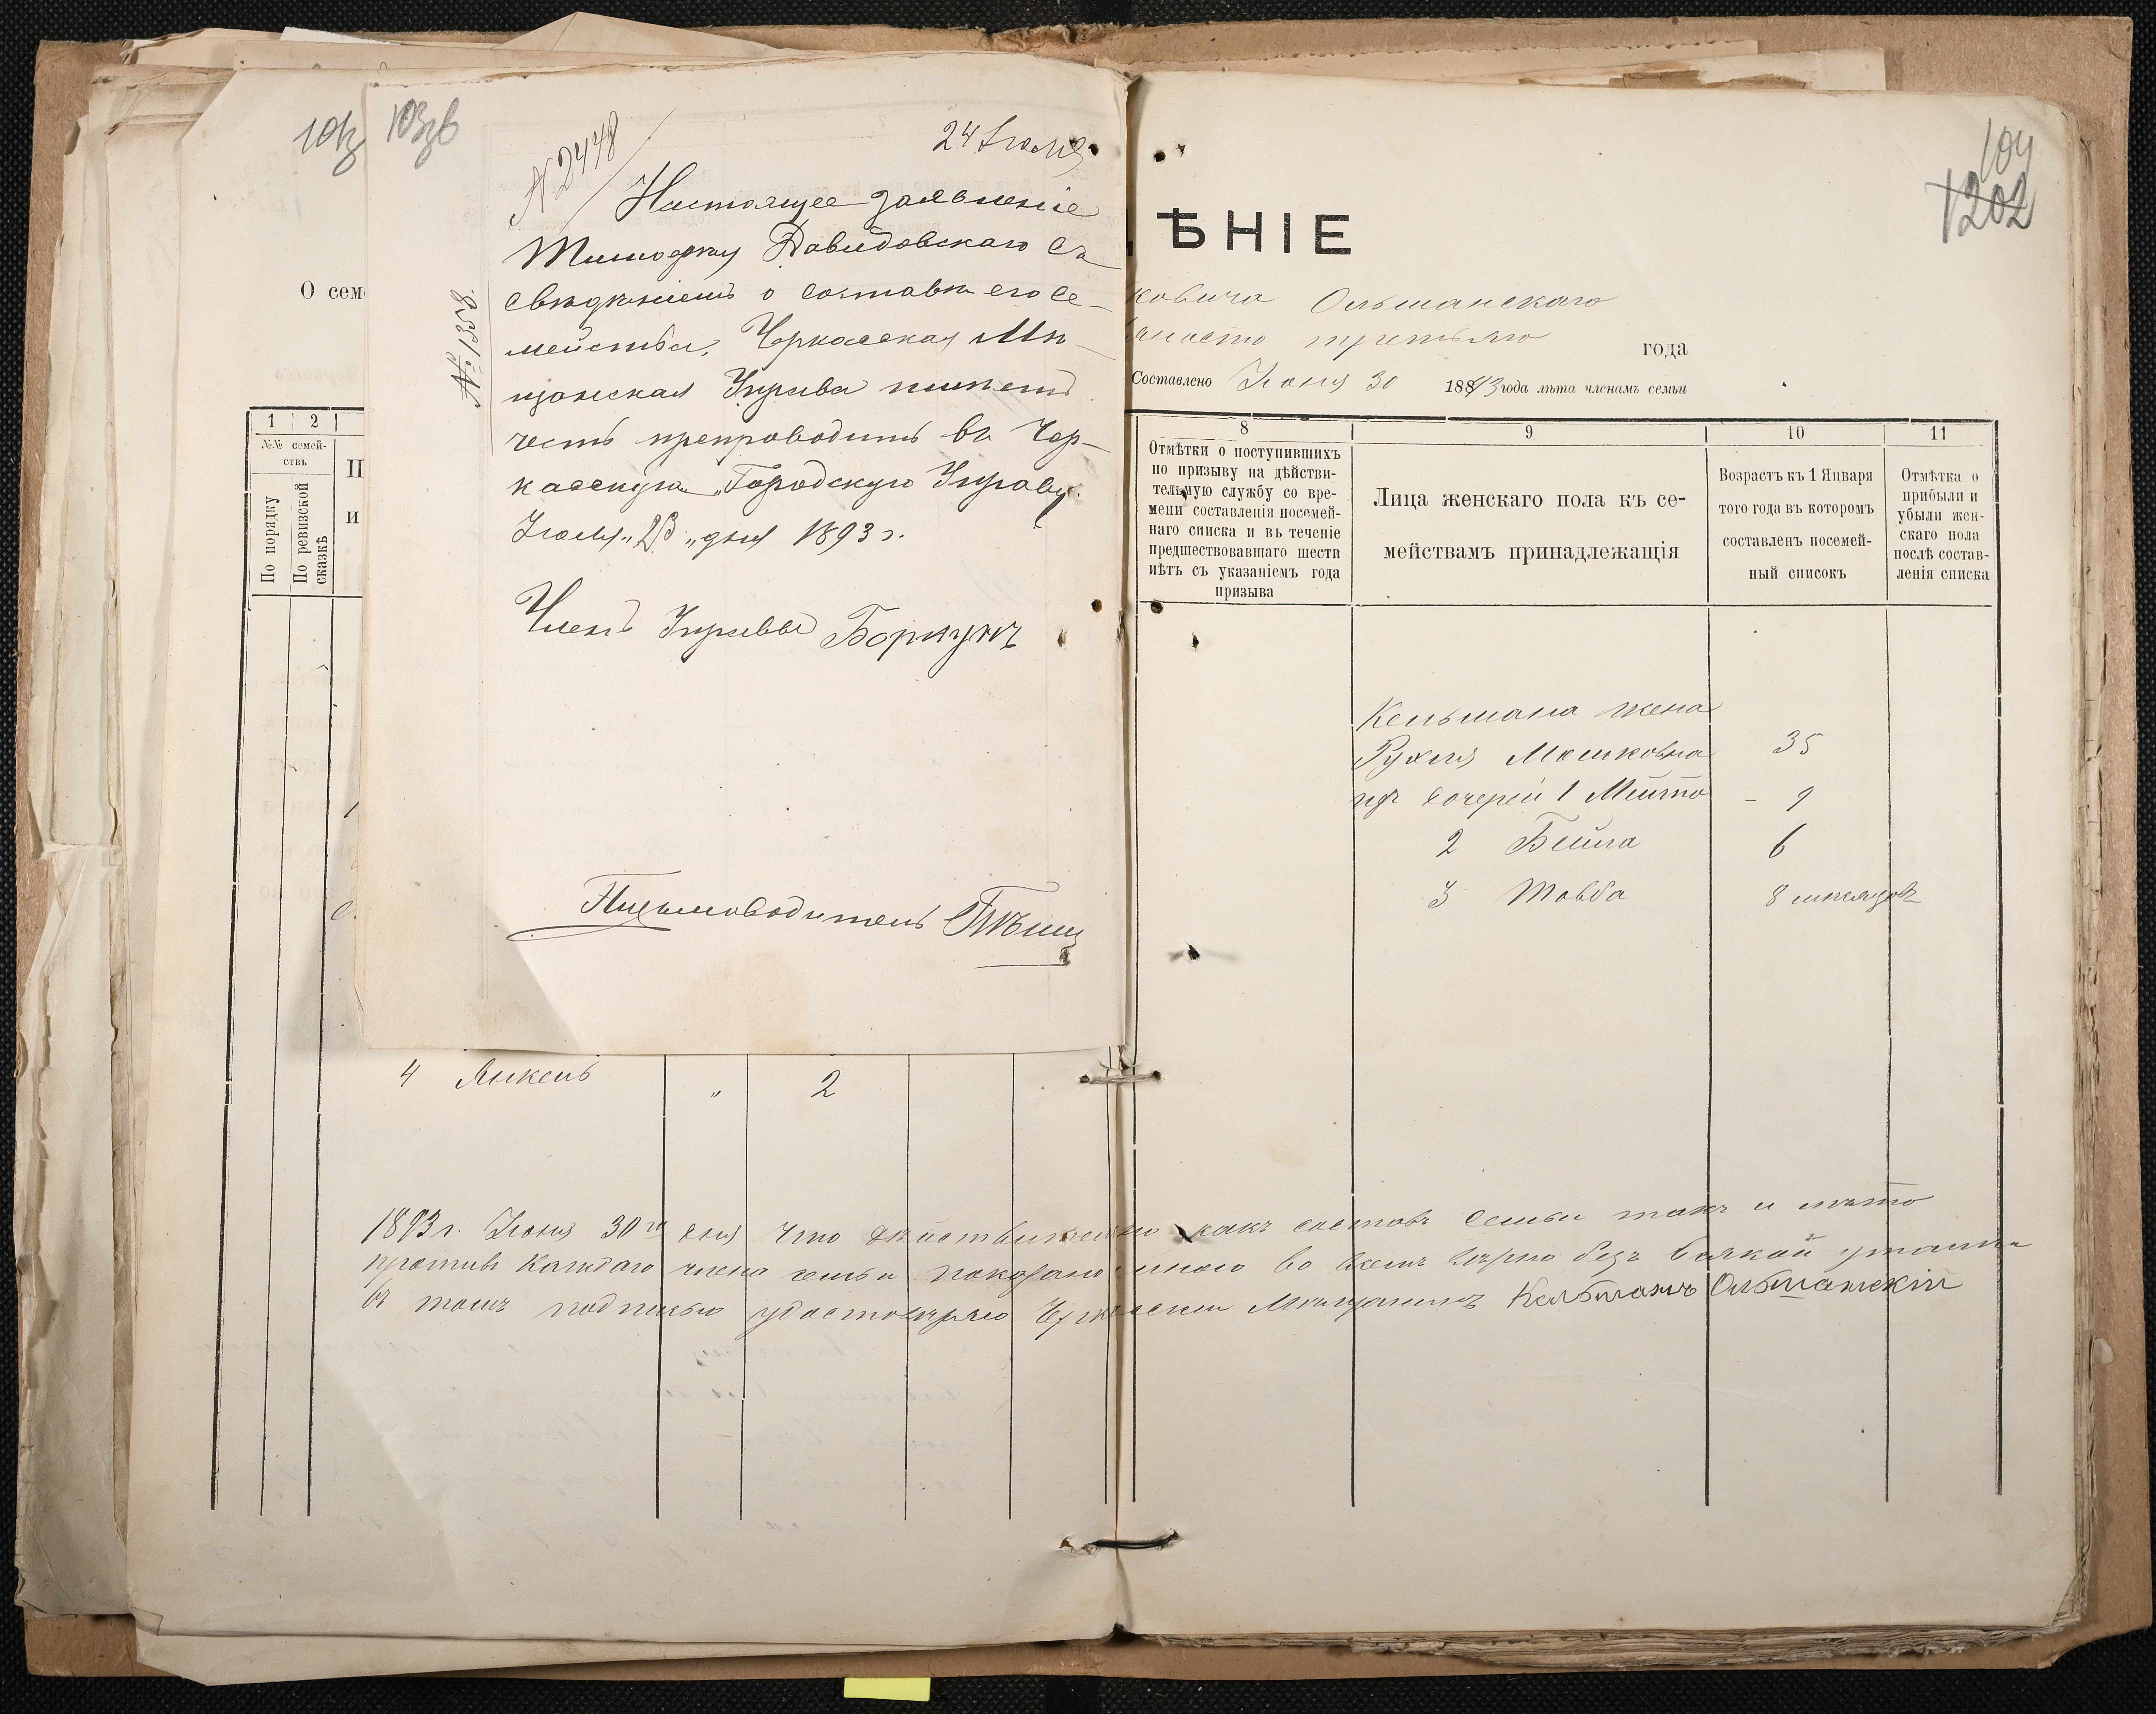 103
103зв
№ 2448
24 Іюля
№ 1358.
Настоящее заявленіе
Тимофея Давидовскаго съ
свѣдѣніемъ о составѣ его се-
мейства, Черкасская Мѣ-
щанская Управа имѣетъ
честь препроводить въ Чер-
касскую Городскую Управу.
Іюля „23„ дня 1893 г.
Членъ Управы
Письмоводитель
104
1202
О сем
ѢНІЕ
ковича Ольшанскаго
третьяго года
Составлено Іюня 30 1893 года лѣта членамъ семьи
1 2
№№ семей-
ствъ
По порядку
По ревизской
сказкѣ
П
и
8
Отмѣтки о поступившихъ
по призыву на дѣйстви-
тельную службу со вре-
мени составленія посемей-
наго списка и въ теченіе
предшествовавшаго шести
лѣтъ съ указаніемъ года
призыва
9
Лица женскаго пола къ се-
мействамъ принадлежащія
10
Возрастъ къ 1 Января
того года въ которомъ
составленъ посемей-
ный списокъ
11
Отмѣтка о
прибыли и
убыли жен-
скаго пола
послѣ состав-
ленія списка
Кельмана жена
Рухля Мошковна 35
дочерей 1 - 9
2 Бейла 6
3 Товба 8 мѣсяцовъ
4 Янкель „ 2
1893 г. Іюня 30го дня что дѣйствительно какъ составъ семьи такъ и лѣта
противъ каждаго члена семьи показано мною во всемъ вѣрно безъ всякой утайки
въ томъ подписью удостовѣряю Черкаскій Мѣщанинъ Кельманъ Ольшанскій